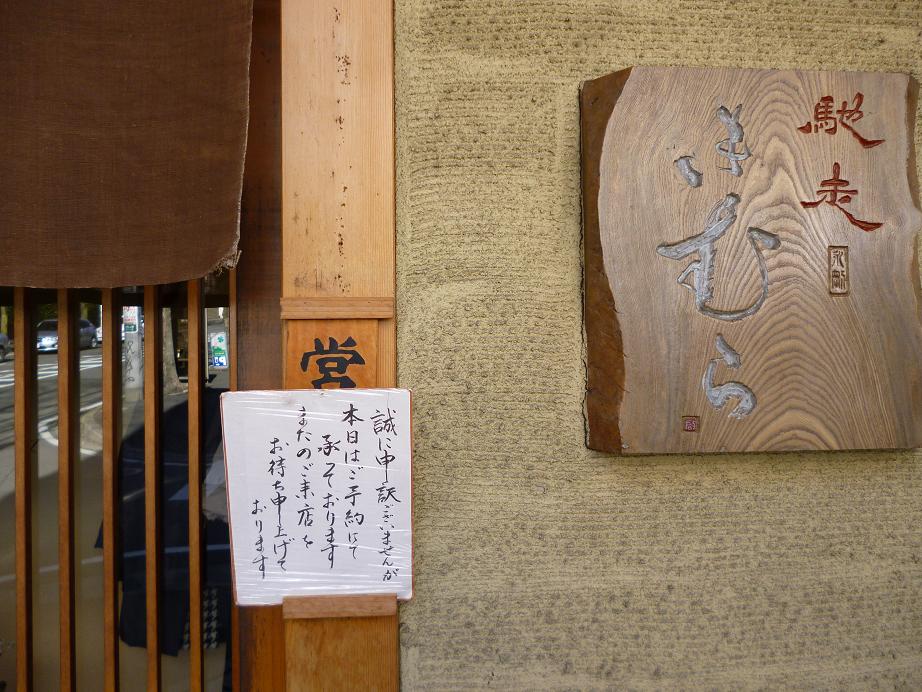 馳走
いむら
営
誠に申訳ございませんが
本日はご予約にて
承っております
またのご来店を
お待ち申上げて
おります